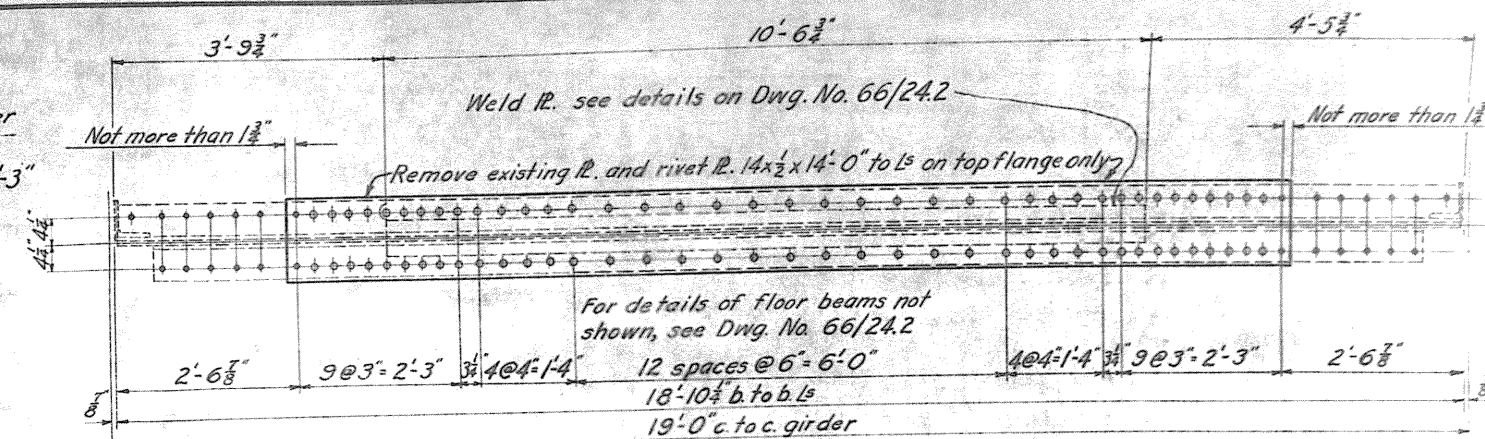 3'-9¾"
10'-6¾"
4'-5¾"
Weld ⅊. see details on Dwg. No. 66/24.2
Not more than 1¾"
Not more than 1¾
-3"
Remove existing ⅊. and rivet ⅊. 14x½x14'-0" to Ls on top flange only
4¼" 4¼"
For details of floor beams not
shown, see Dwg. No. 66/24.2
2'-6⅞"
9@3"=2'-3"
3¼"
4@4"=1'-4"
12 spaces @ 6"=6'-0"
4@4"=1'-4"
3¼"
9@3"=2'-3"
2'-6⅞"
⅞"
18'-10¼" b. to b. Ls
19'-0" c. to c. girder